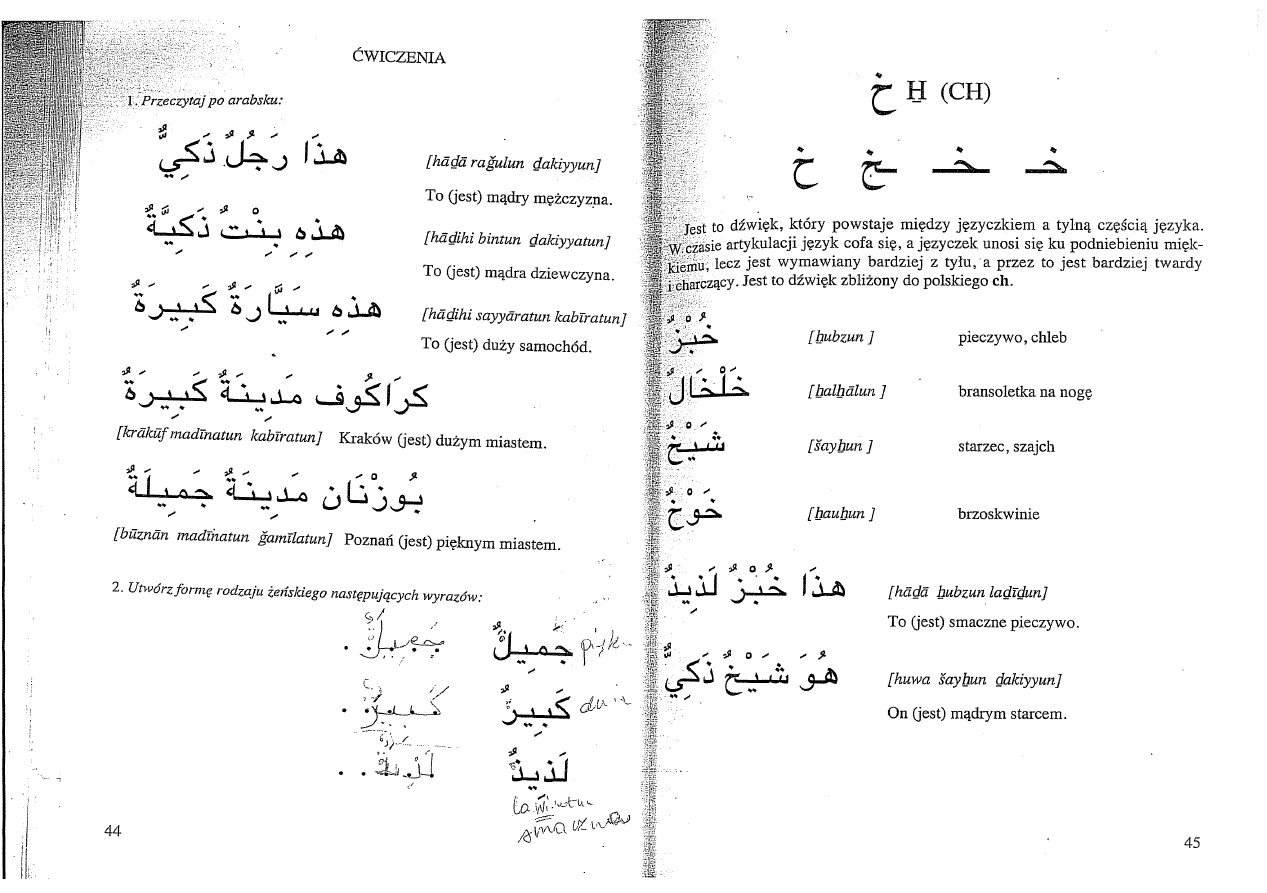 ĆWICZENIA
1. Przeczytaj po arabsku:
هٰذَا رَجُلٌ ذَكِيٌّ
[hāḏā raǧulun ḏakiyyun]
To (jest) mądry mężczyzna.
هٰذِهِ بِنْتٌ ذَكِيَّةٌ
[hāḏihi bintun ḏakiyyatun]
To (jest) mądra dziewczyna.
هٰذِهِ سَيَّارَةٌ كَبِيرَةٌ
[hāḏihi sayyāratun kabīratun]
To (jest) duży samochód.
كرَاكُوف مَدِينَةٌ كَبِيرَةٌ
[krākūf madīnatun kabīratun] Kraków (jest) dużym miastem.
بُوزْنَان مَدِينَةٌ جَمِيلَةٌ
[būznān madīnatun ǧamīlatun] Poznań (jest) pięknym miastem.
2. Utwórz formę rodzaju żeńskiego następujących wyrazów:
جَمِيلٌ
كَبِيرٌ
لَذِيذٌ
44
خ H̱ (CH)
خـ ـخـ ـخ خ
Jest to dźwięk, który powstaje między języczkiem a tylną częścią języka.
W czasie artykulacji język cofa się, a języczek unosi się ku podniebieniu mięk-
kiemu, lecz jest wymawiany bardziej z tyłu, a przez to jest bardziej twardy
i charczący. Jest to dźwięk zbliżony do polskiego ch.
خُبْزٌ [ẖubzun ] pieczywo, chleb
خَلْخَالٌ [ẖalẖālun ] bransoletka na nogę
شَيْخٌ [šayẖun ] starzec, szajch
خَوْخٌ [ẖauẖun ] brzoskwinie
هٰذَا خُبْزٌ لَذِيذٌ [hāḏā ẖubzun laḏīḏun]
To (jest) smaczne pieczywo.
هُوَ شَيْخٌ ذَكِيٌّ [huwa šayẖun ḏakiyyun]
On (jest) mądrym starcem.
45